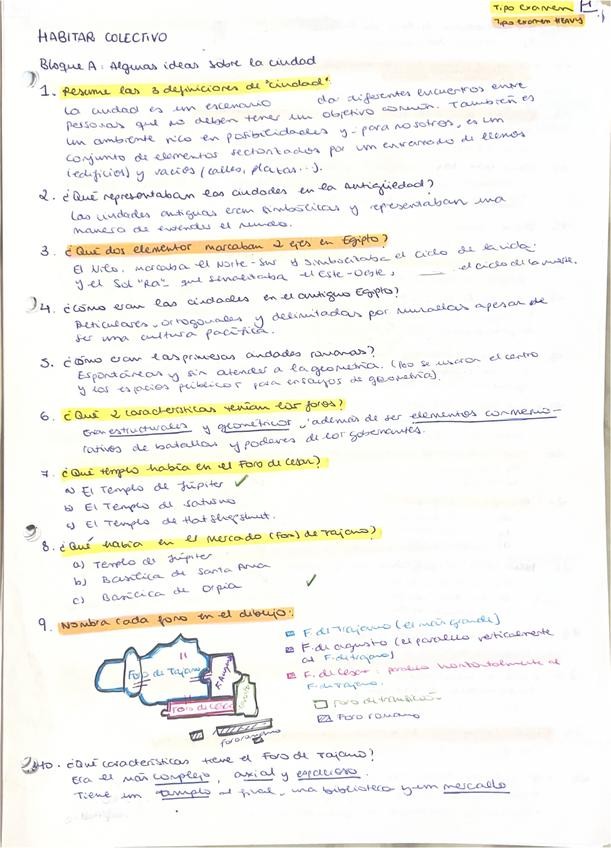 Tipo examen
Tipo examen HEAVY
HABITAR COLECTIVO
Bloque A: Algunas ideas sobre la ciudad
1. Resume las 3 definiciones de "ciudad".
La ciudad es un escenario da diferentes encuentros entre
personas que no deben tener un objetivo común. También es
un ambiente rico en posibilidades y - para nosotros, es un
conjunto de elementos sectorizados por un entramado de llenos
(edificios) y vacíos (calles, plazas...).
2. ¿Qué representaban las ciudades en la antigüedad?
Las ciudades antiguas eran simbólicas y representaban una
manera de entender el mundo.
3. ¿Qué dos elementos marcaban 2 ejes en Egipto?
El Nilo, marcaba el Norte-Sur y simbolizaba el ciclo de la vida.
y el Sol "Ra" que señalizaba el Este-Oeste, el ciclo de la muerte.
4. ¿Cómo eran las ciudades en el antiguo Egipto?
Reticulares, ortogonales y delimitadas por murallas apesar de
ser una cultura pacífica.
5. ¿Cómo eran las primeras ciudades romanas?
Espontáneas y sin atender a la geometría. (No se usaron el centro
y los espacios públicos para ensayos de geometría).
6. ¿Qué 2 características tenían los foros?
Eran estructurales y geométricos, además de ser elementos conmemo-
rativos de batallas y poderes de los gobernantes.
7. ¿Qué templo había en el Foro de César?
a) El Templo de Júpiter ✓
b) El Templo de Saturno
c) El Templo de Hatshepshut.
8. ¿Qué había en el mercado (Foro) de Trajano?
a) Templo de Júpiter
b) Basílica de Santa Anna
c) Basílica de Orpia ✓
9. Nombra cada foro en el dibujo:
Foro de Trajano
F. Augusto
Foro de César
Foro romano
F. de Trajano (el más grande)
F. de Augusto (el paralelo verticalmente
al F. de trajano)
F. de César: paralelo horizontalmente al
F. de Trajano.
Foro de transición
Foro romano
10. ¿Qué características tiene el Foro de Trajano?
Era el más complejo, axial y espacioso.
Tiene un templo al final, una biblioteca y un mercado